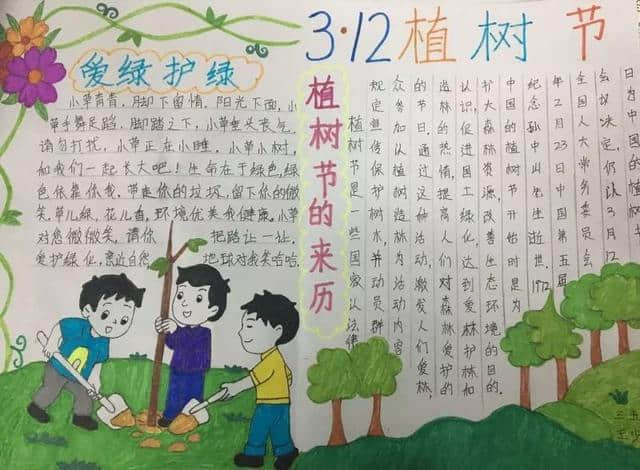 3·12植树节
爱绿护绿
小草青青，脚下留情，阳光下面，小
草手舞足蹈，脚踏之下，小草垂头丧气。
请勿打扰，小草正在小睡，小草小树，
和我们一起长大吧！生命在于绿色，绿
色依靠你我，带走你的垃圾，留下你的微
笑，草儿绿，花儿香，环境优美我健康。小草
对您微微笑，请你 把路让一让。
爱护绿化，亲近自然 地球对我笑哈哈。
植树节的来历
植树节是一些国家以法律
规定宣传保护树木，并动员群
众参加以植树造林活动内容
的节日。通过这种活动，激发人们爱林、
造林的热情，提高人们对森林爱护的
认识，促进国土绿化，达到爱林护林和
扩大森林资源、改善生态环境的目的。
中国的植树节开始时是为
纪念孙中山先生逝世。1972
年2月23日中国第五届
全国人大常务委员会
会议决定，仍以3月12
日为中国的